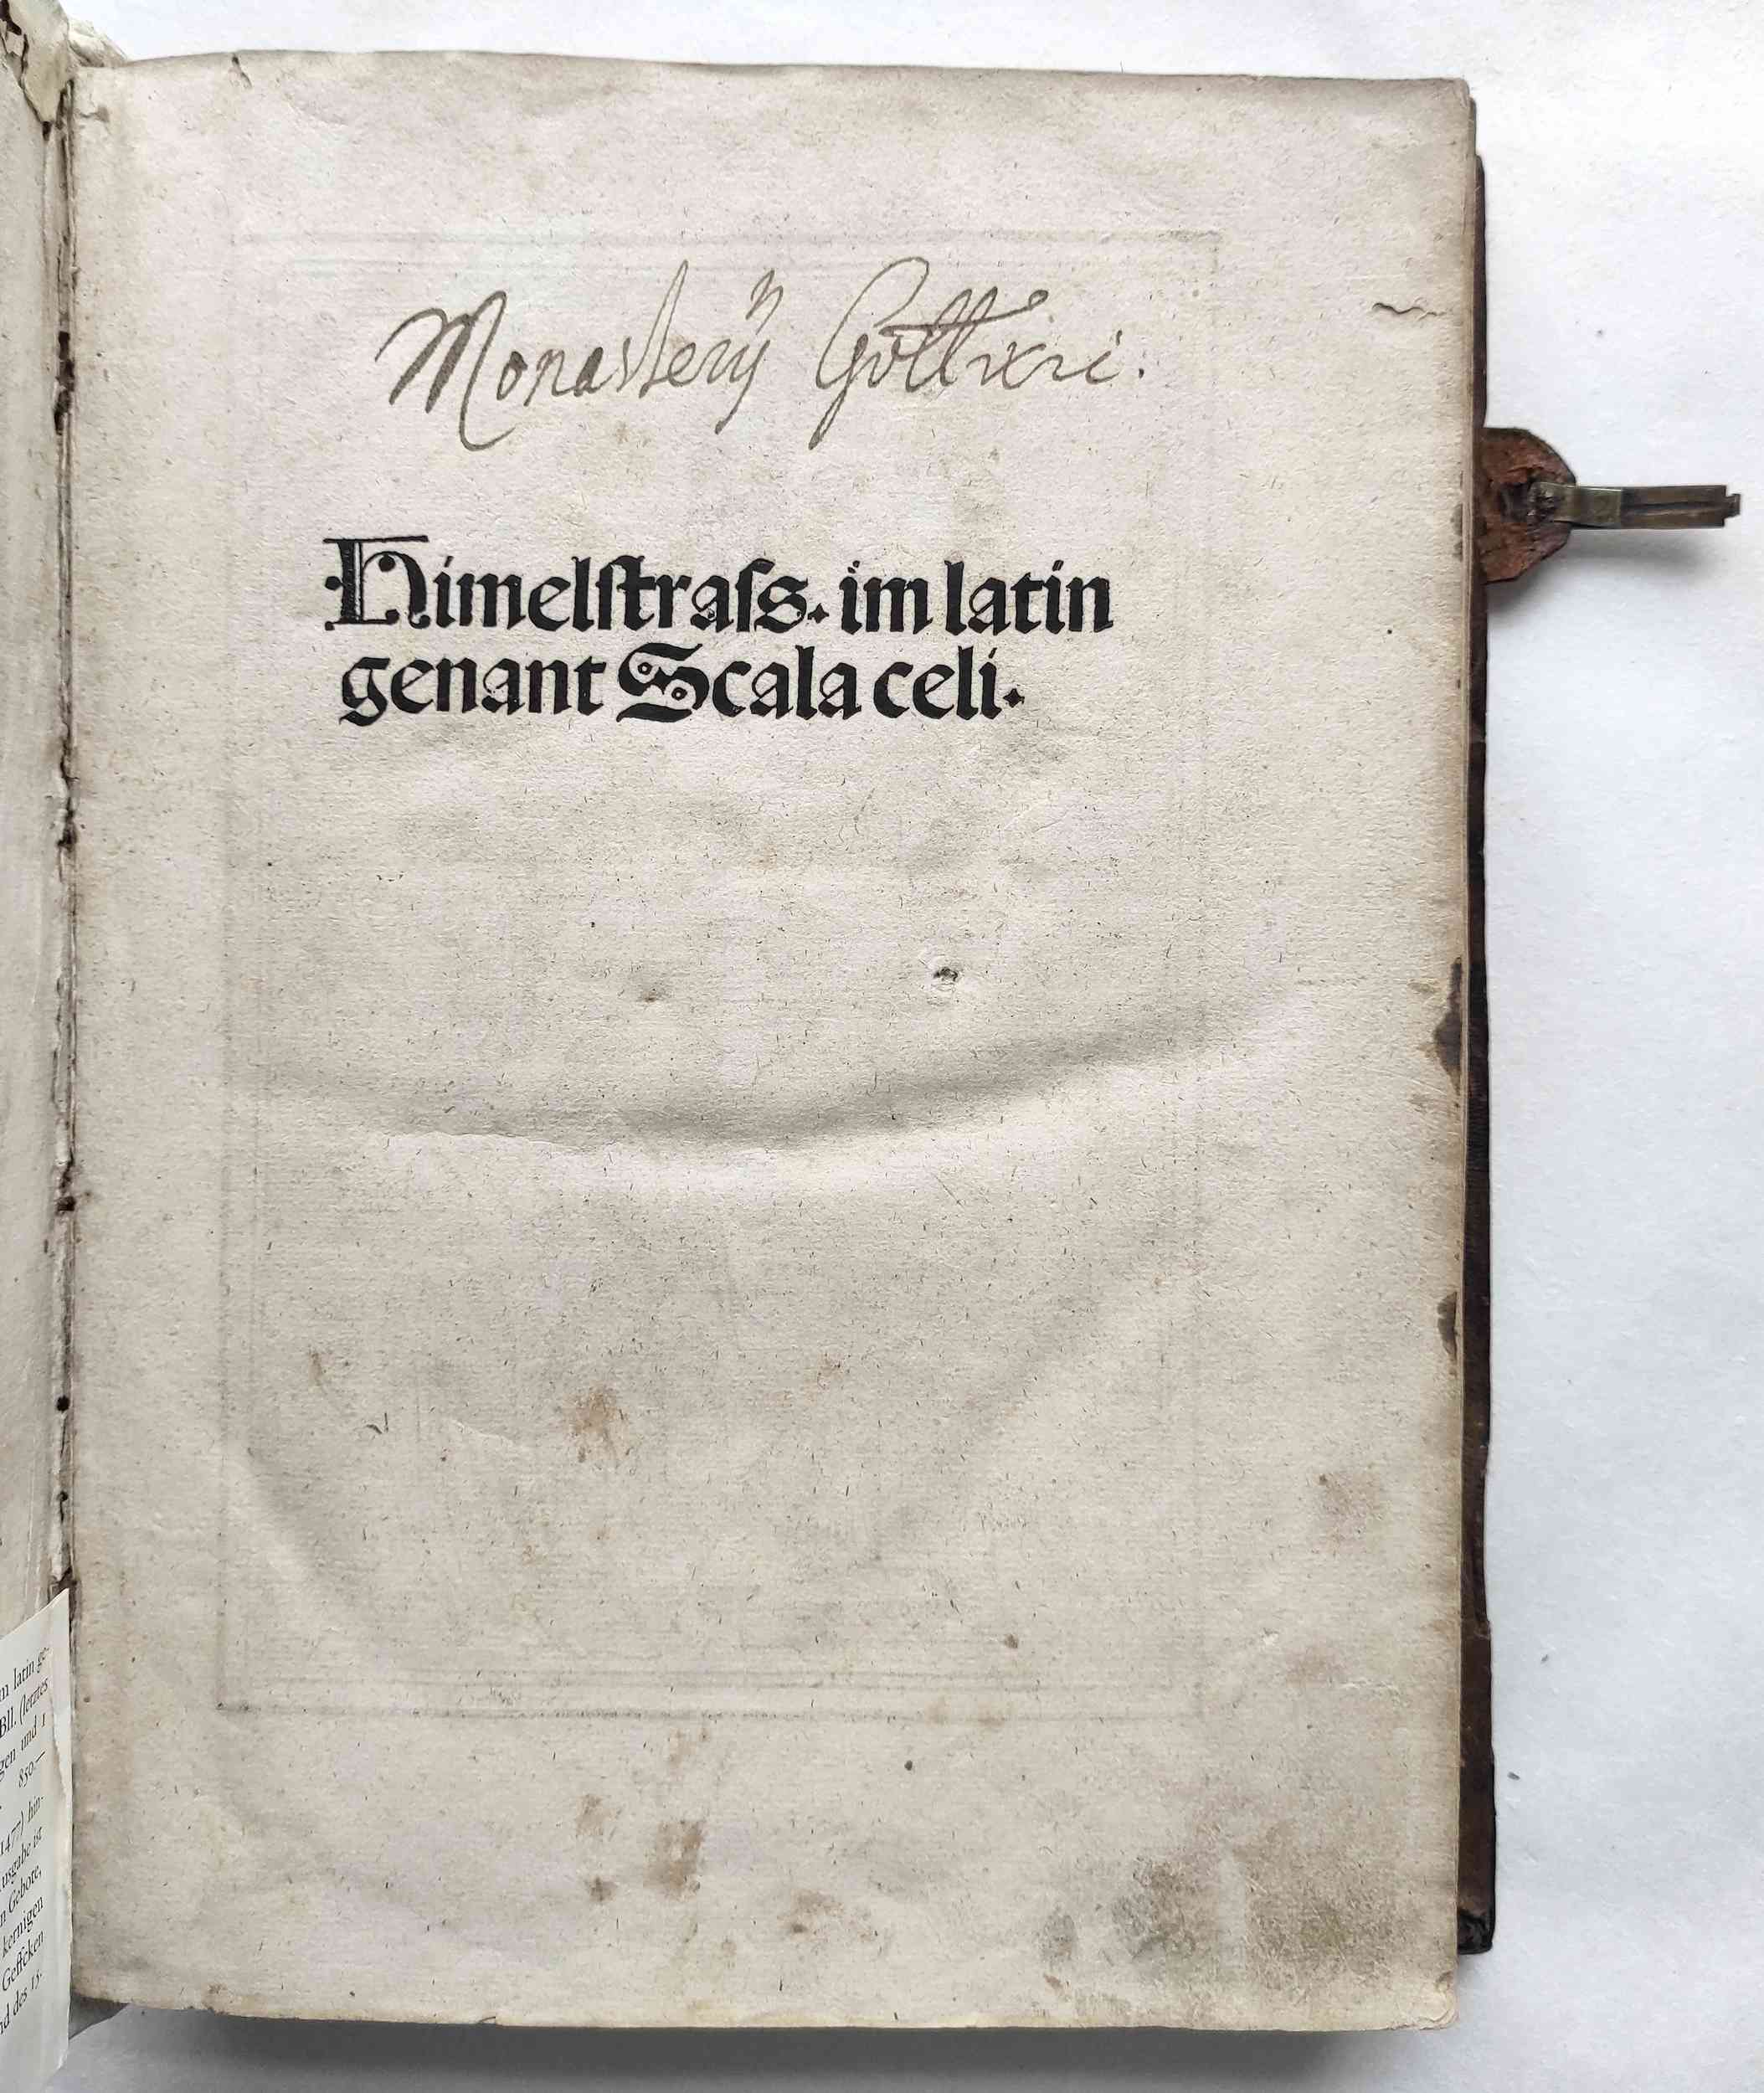 Monasterij Gottwici.
Himelſtraſs. im latin
genant Scala celi.
n latin ge-
Bll. (letztes
gen und 1
850.—
1477) hin-
usgabe ist
n Gebote,
kernigen
Geffcken
nd des 15.